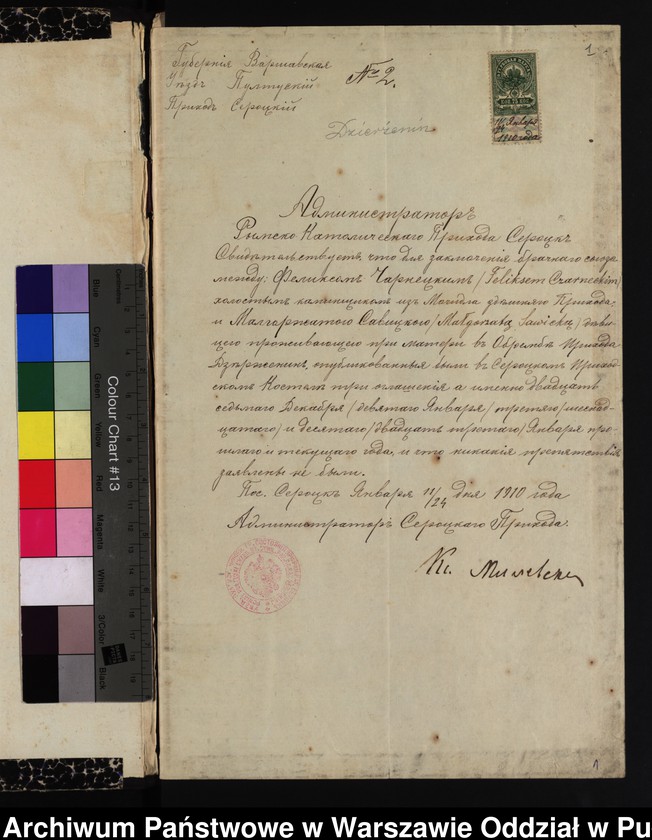 Губернія Варшавская
Уѣздъ Пултускій
Приходъ Сероцкій
№ 2.
1
Dzierżenin
11/24 Января
1910 года
Администраторъ
Римско-Католическаго Прихода Сероцкъ
Свидѣтельствуетъ, что для заключенія брачнаго союза
между: Феликсомъ Чарнецкимъ /Feliksem Czarneckim/
холостымъ каменщикомъ изъ здѣшняго Прихода
и Малгоржатою Савицкою /Małgorzatą Sawicką/ дѣви
цею проживающею при матери въ Обрембѣ Прихода
Дзержѣнинъ, опубликованныя были въ Сероцкомъ Приход-
скомъ Костелѣ три оглашенія а именно двадцать
седьмаго Декабря /девятаго Января/ третяго /шестнад-
цатаго/ и десятаго /двадцать третяго/ Января про-
шлаго и текущаго года, и что никакія препятствія
заявлены не были.
Пос. Сероцкъ Января 11/24 дня 1910 года
Администраторъ Сероцкаго Прихода:
Кс. Милевски
1
Colour Chart #13
Blue
Cyan
Green
Yellow
Red
Magenta
White
3/Color
Black
Centimetres
Archiwum Państwowe w Warszawie Oddział w Pu